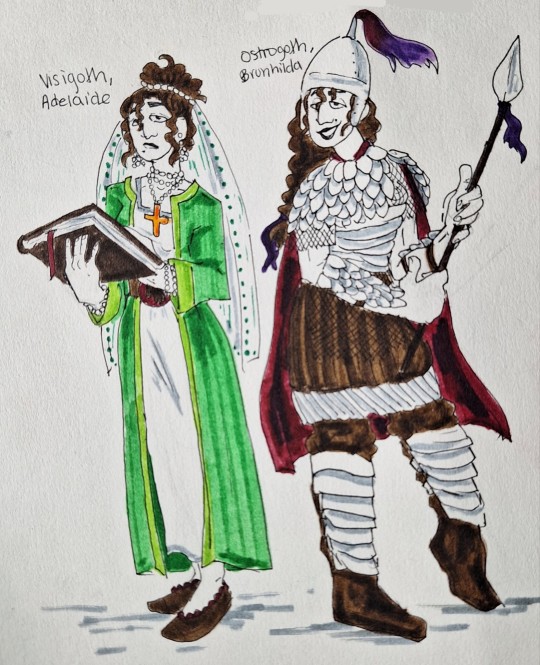 Visigoth,
Adelaide
Ostrogoth,
Brunhilda